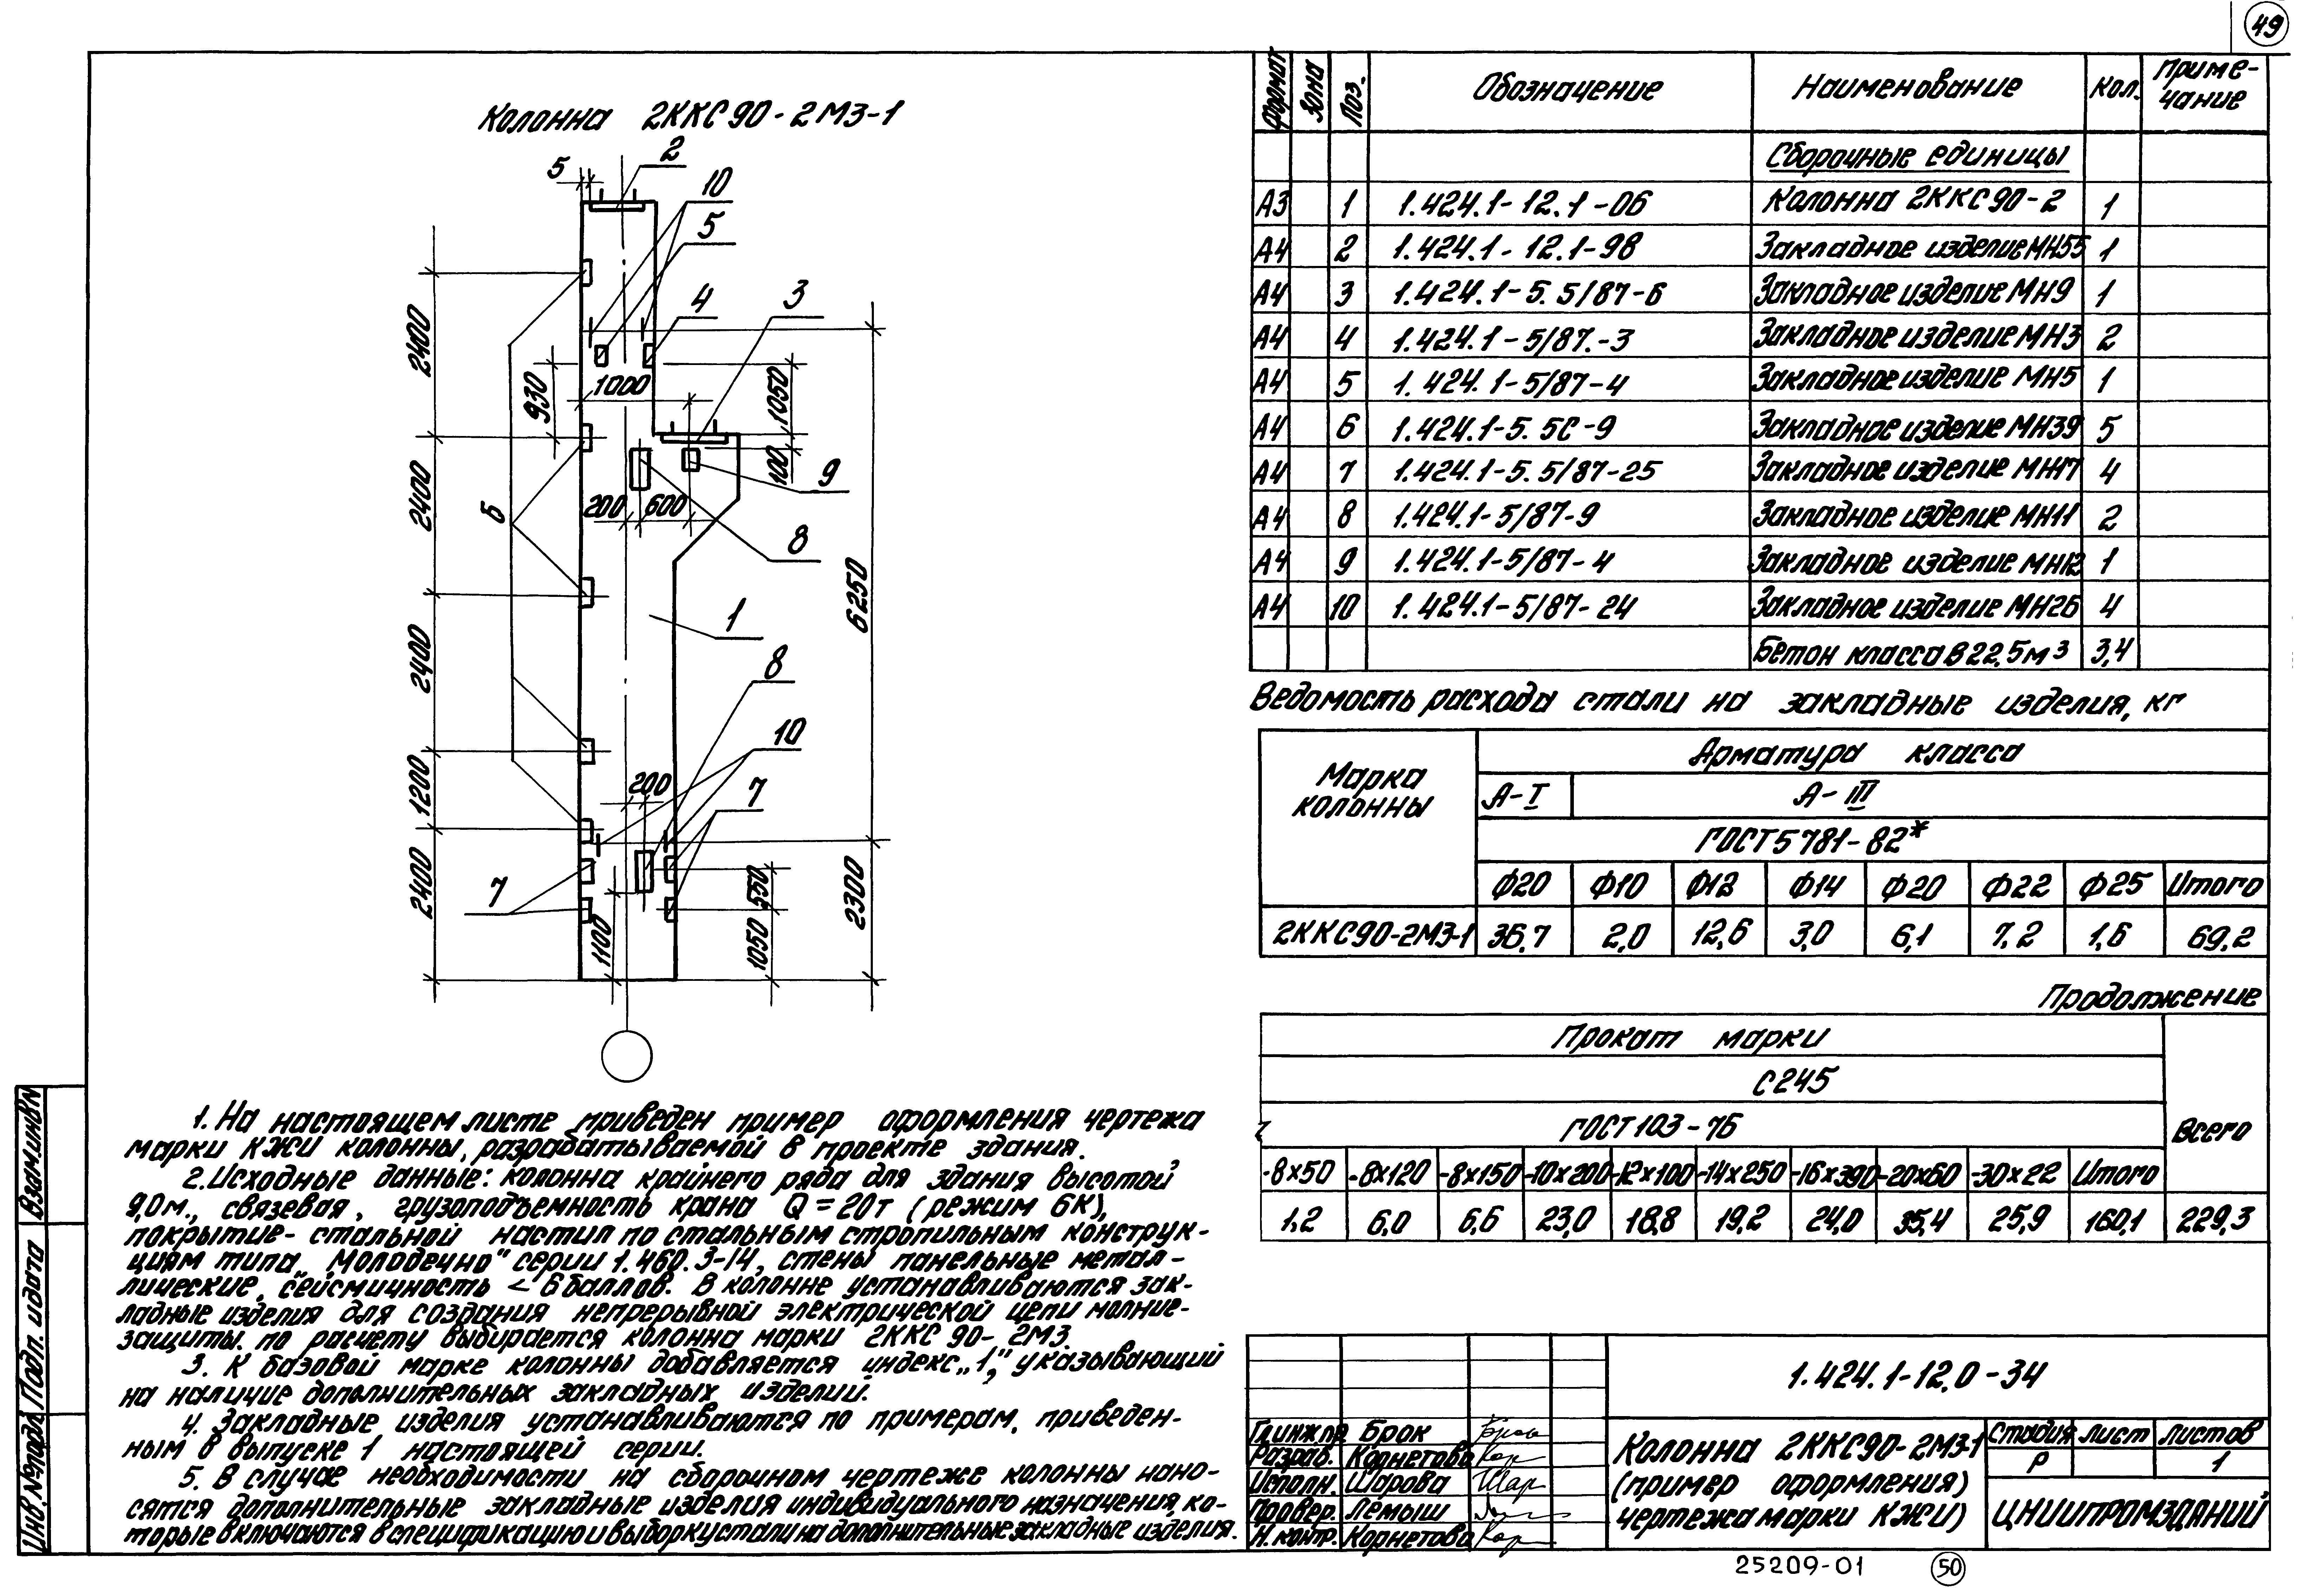 49
Колонна 2ККС90-2М3-1
5
2
10
5
4
3
2400
930
1000
1050
100
9
200
600
8
2400
6
2400
1
6250
8
10
200
7
1200
2400
7
1100
550
1050
2300
1. На настоящем листе приведен пример оформления чертежа
марки КЖИ колонны, разрабатываемой в проекте здания.
2. Исходные данные: колонна крайнего ряда для здания высотой
9,0м., связевая, грузоподъемность крана Q = 20т (режим 6К),
покрытие - стальной настил по стальным стропильным конструк-
циям типа „Молодечно" серии 1.460.3-14, стены панельные метал-
лические, сейсмичность < 6 баллов. В колонне устанавливаются зак-
ладные изделия для создания непрерывной электрической цепи молние-
защиты. по расчету выбирается колонна марки 2ККС 90-2М3.
3. К базовой марке колонны добавляется индекс „1," указывающий
на наличие дополнительных закладных изделий.
4. Закладные изделия устанавливаются по примерам, приведен-
ным в выпуске 1 настоящей серии.
5. В случае необходимости на сборочном чертеже колонны нано-
сятся дополнительные закладные изделия индивидуального назначения, ко-
торые включаются в спецификацию и выборку стали на дополнительные закладные изделия.
Формат Зона Поз. Обозначение Наименование Кол. Приме-
чание
Сборочные единицы
А3 1 1.424.1-12.1-06 Колонна 2ККС90-2 1
А4 2 1.424.1-12.1-98 Закладное изделие МН55 1
А4 3 1.424.1-5.5/87-6 Закладное изделие МН9 1
А4 4 1.424.1-5/87.-3 Закладное изделие МН3 2
А4 5 1.424.1-5/87-4 Закладное изделие МН5 1
А4 6 1.424.1-5.5С-9 Закладное изделие МН39 5
А4 7 1.424.1-5.5/87-25 Закладное изделие МН17 4
А4 8 1.424.1-5/87-9 Закладное изделие МН11 2
А4 9 1.424.1-5/87-4 Закладное изделие МН12 1
А4 10 1.424.1-5/87-24 Закладное изделие МН26 4
Бетон класса В22,5 м³ 3,4
Ведомость расхода стали на закладные изделия, кг
Марка
колонны
Арматура класса
А-I А-III
ГОСТ 5781-82*
Ф20 Ф10 Ф12 Ф14 Ф20 Ф22 Ф25 Итого
2ККС90-2М3-1 36,7 2,0 12,6 3,0 6,1 7,2 1,6 69,2
Продолжение
Прокат марки
С245
ГОСТ 103-76
Всего
-8х50 -8х120 -8х150 -10х200 -12х100 -14х250 -16х390 -20х60 -30х22 Итого
1,2 6,0 6,6 23,0 18,8 19,2 24,0 35,4 25,9 160,1 229,3
1.424.1-12.0-34
Гл.инж.пр. Брок
Разраб. Корнетова
Исполн. Шарова
Провер. Лемыш
Н.контр. Корнетова
Колонна 2ККС90-2М3-1
(пример оформления)
чертежа марки КЖИ)
Стадия Лист Листов
Р 1
ЦНИИПРОМЗДАНИЙ
Взам.инв№
Подп. и дата
Инв.№подл
25209-01 50